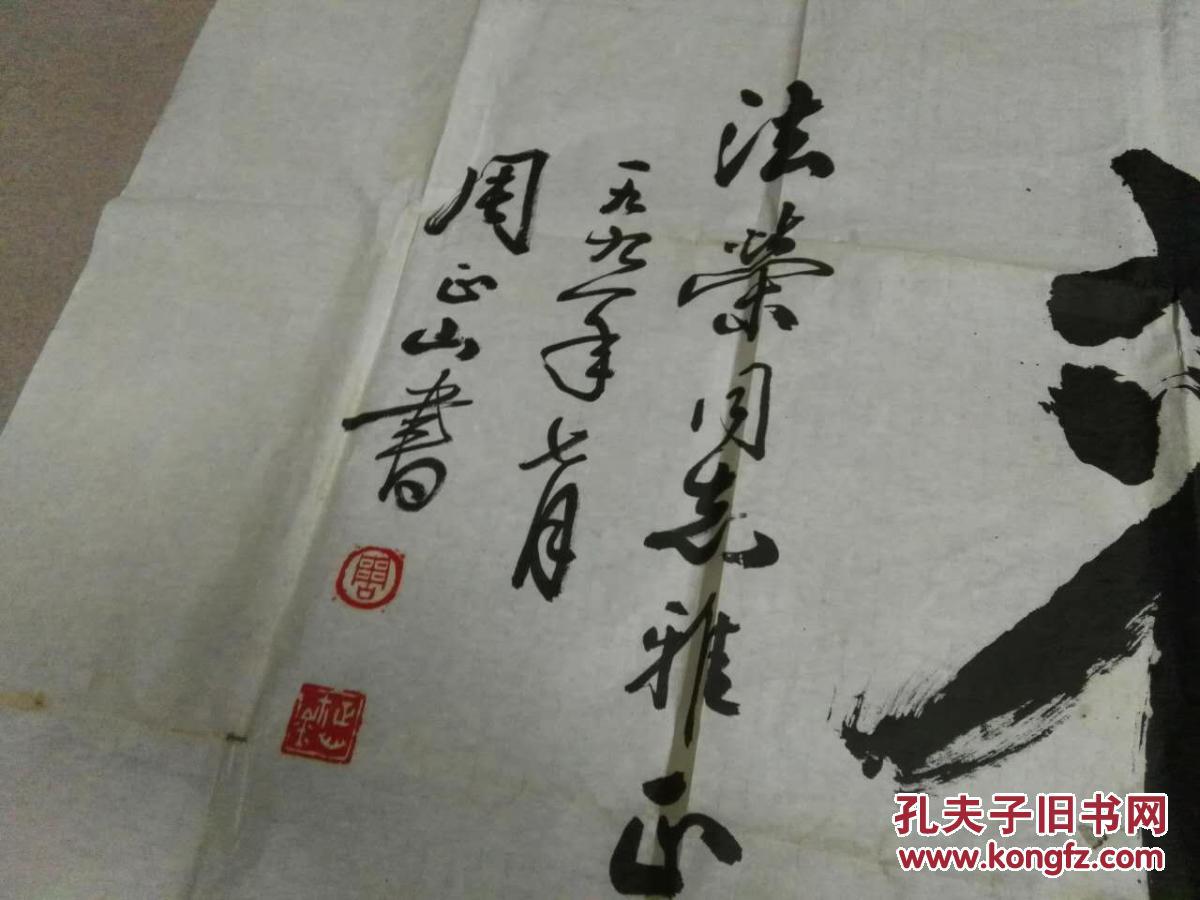 法荣同志雅正
一九九一年七月
周正山書
周
孔夫子旧书网
www.kongfz.com